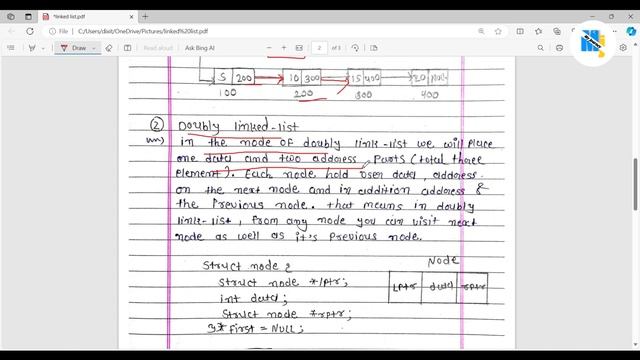 *linked list.pdf
File C:/Users/dixit/OneDrive/Pictures/linked%20list.pdf
Read aloud Ask Bing AI 2 of 3
5 200 10 300 15 400 20 Null
100 200 300 400
② Doubly linked-list
Ans) in the node of doubly link-list we will place
one data and two address parts (total three
element). Each node hold user data, address
on the next node and in addition address &
the previous node. that means in doubly
link-list, from any node you can visit next
node as well as it's previous node.
Node
Struct node {
Struct node *lptr;
Lptr data rptr
int data;
Struct node *rptr;
}* First = NULL;